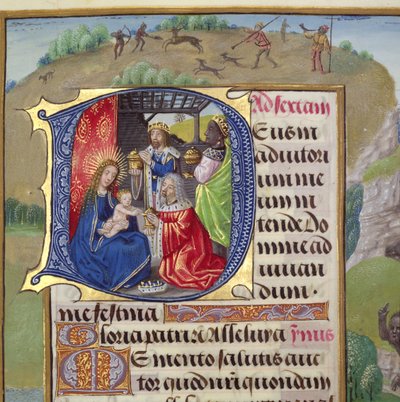 Ad sextam
Deus in
adiutori
um me
um in
tende Do
mine ad
iuuan
dum.
me festina
Gloria patri Alleluya ymus
Memento salutis auc
tor quod nri quondam